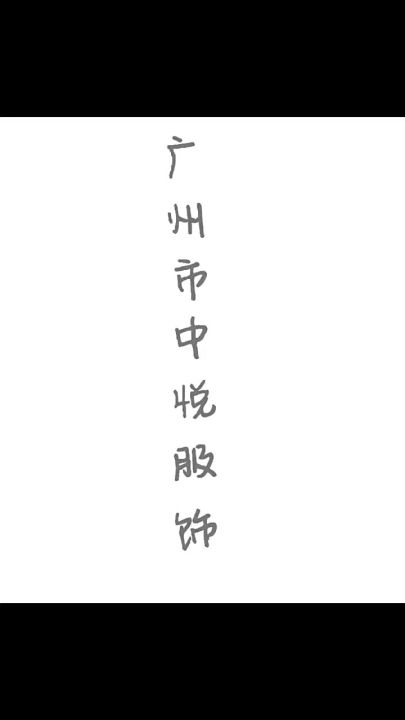 广州市中悦服饰